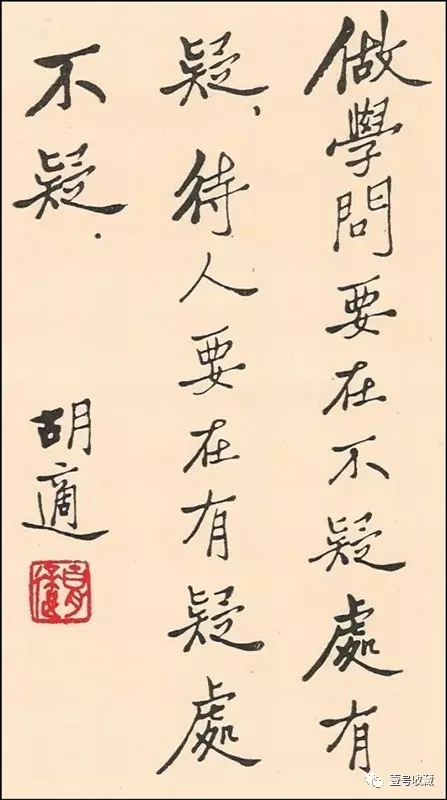 做學問要在不疑處有
疑，待人要在有疑處
不疑．
胡適
壹号收藏